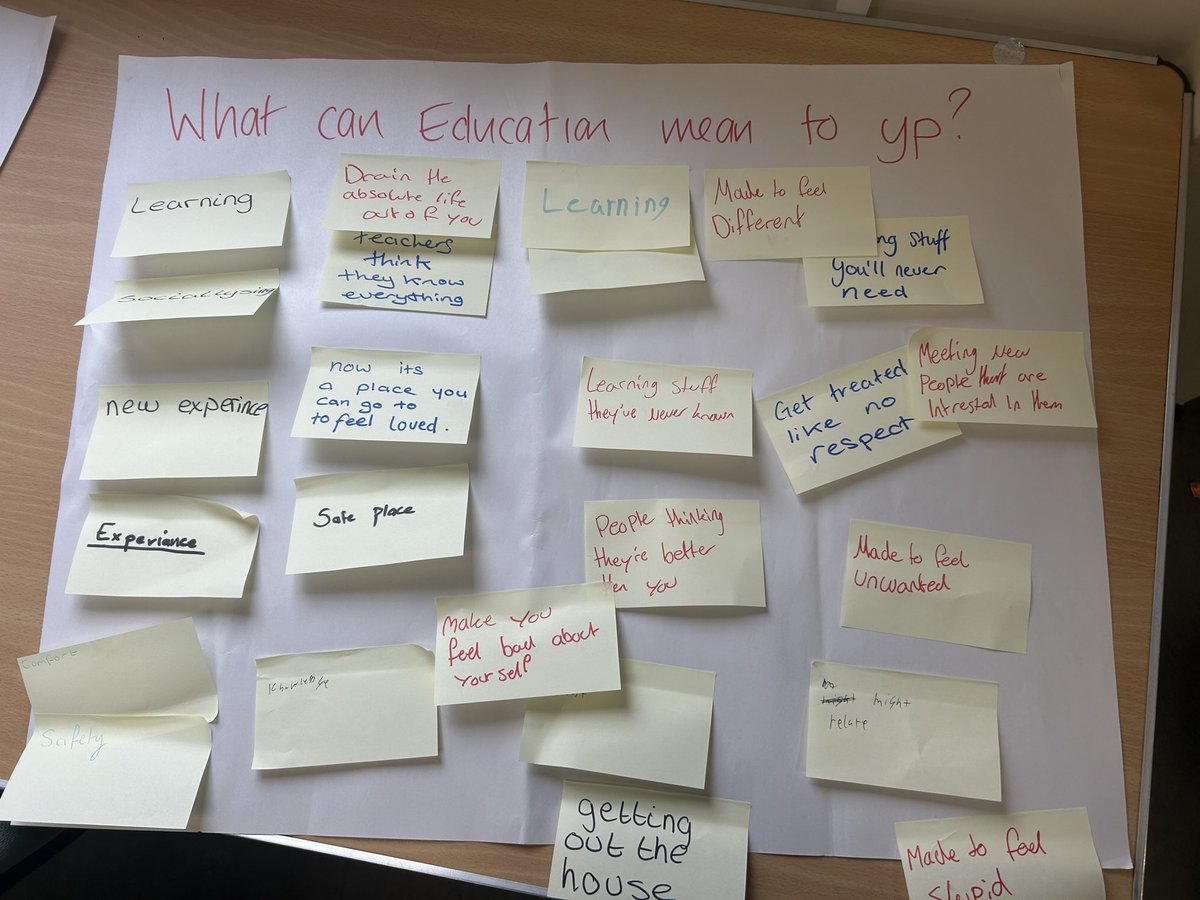 What can Education mean to yp?
Learning
Drain the
absolute life
out of you
teachers
think
they know
everything
Learning
Made to feel
Different
ng stuff
you'll never
need
Sociallysing
new experince
now its
a place you
can go to
to feel loved.
Learning stuff
they've never known
Get treated
like no
respect
Meeting new
People that are
Intrestd In them
Experiance
Safe place
People thinking
they're better
then you
Made to feel
unwanted
Make you
feel bad about
yourself
Comfort
Safety
Knowledge
might
relate
getting
out the
house
Made to feel
stupid